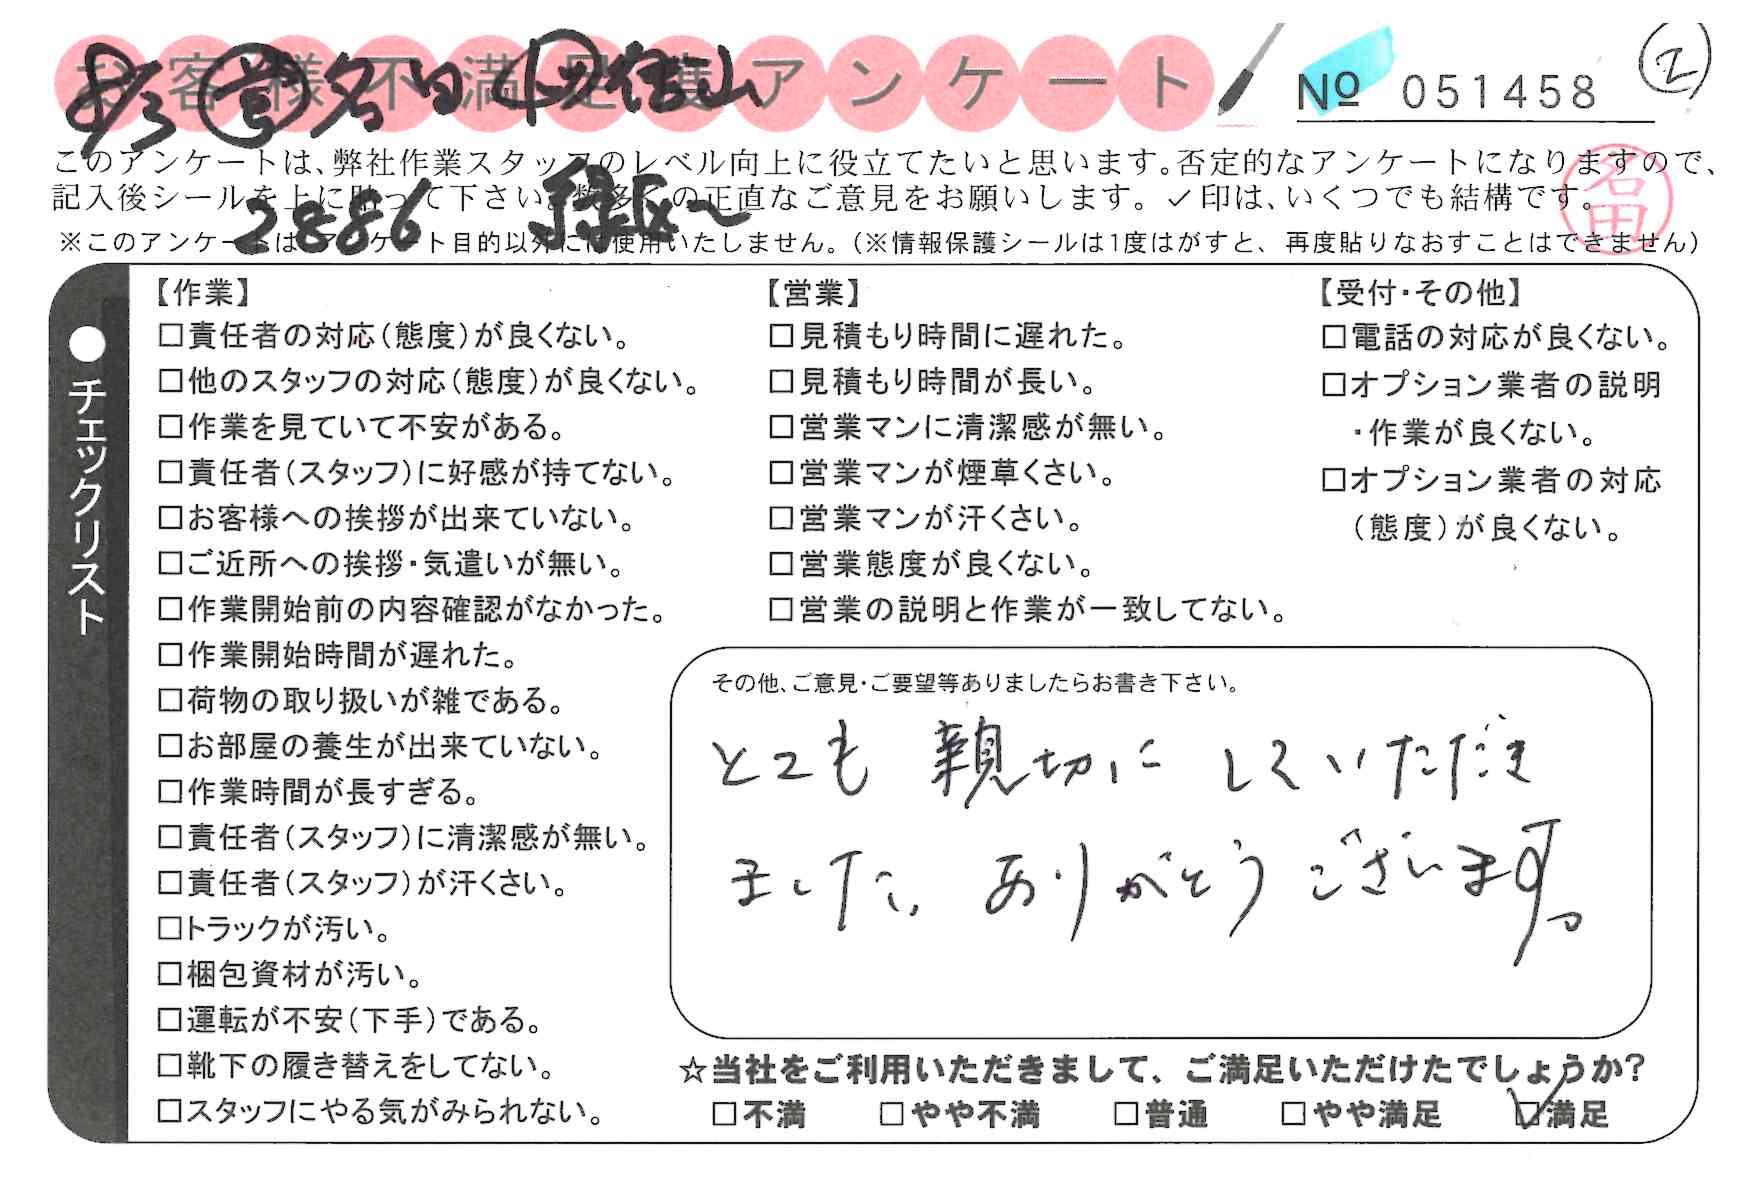 お客様不満足度アンケート
№ 051458
2
8/3 営 名田
2886 緑区〜
名田
このアンケートは、弊社作業スタッフのレベル向上に役立てたいと思います。否定的なアンケートになりますので、
記入後シールを上に貼って下さい。数多くの正直なご意見をお願いします。✓印は、いくつでも結構です。
※このアンケートは、アンケート目的以外には使用いたしません。（※情報保護シールは1度はがすと、再度貼りなおすことはできません）
●チェックリスト
【作業】
□責任者の対応（態度）が良くない。
□他のスタッフの対応（態度）が良くない。
□作業を見ていて不安がある。
□責任者（スタッフ）に好感が持てない。
□お客様への挨拶が出来ていない。
□ご近所への挨拶・気遣いが無い。
□作業開始前の内容確認がなかった。
□作業開始時間が遅れた。
□荷物の取り扱いが雑である。
□お部屋の養生が出来ていない。
□作業時間が長すぎる。
□責任者（スタッフ）に清潔感が無い。
□責任者（スタッフ）が汗くさい。
□トラックが汚い。
□梱包資材が汚い。
□運転が不安（下手）である。
□靴下の履き替えをしてない。
□スタッフにやる気がみられない。
【営業】
□見積もり時間に遅れた。
□見積もり時間が長い。
□営業マンに清潔感が無い。
□営業マンが煙草くさい。
□営業マンが汗くさい。
□営業態度が良くない。
□営業の説明と作業が一致してない。
【受付・その他】
□電話の対応が良くない。
□オプション業者の説明
・作業が良くない。
□オプション業者の対応
（態度）が良くない。
その他、ご意見・ご要望等ありましたらお書き下さい。
とても親切にしていただき
ました。ありがとうございます。
☆当社をご利用いただきまして、ご満足いただけたでしょうか？
□不満 □やや不満 □普通 □やや満足 ☑満足